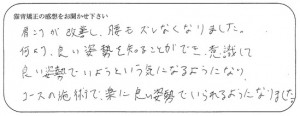 猫背矯正の感想をお聞かせ下さい
肩こりが改善し、腰もズレなくなりました。
何より、良い姿勢を知ることができ、意識して
良い姿勢でいようという気になるようになり
コースの施術で、楽に良い姿勢でいられるようになりました